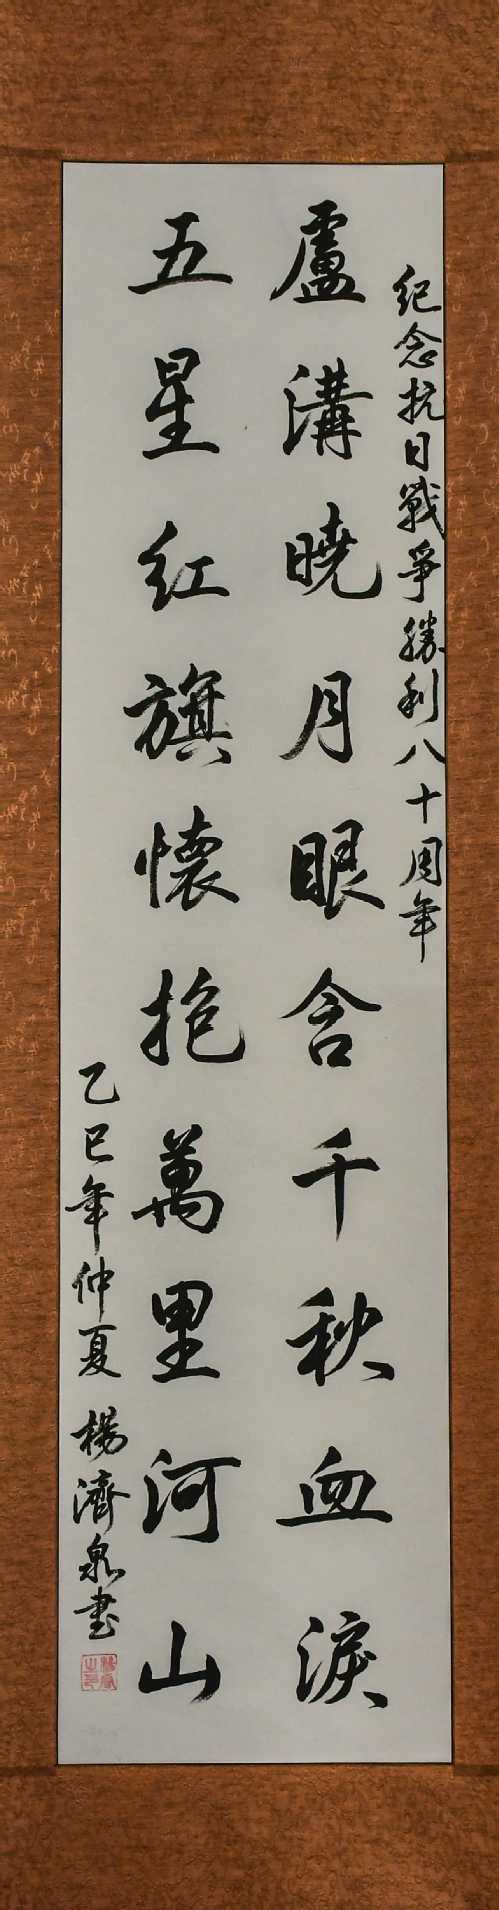 紀念抗日戰爭勝利八十周年
盧溝曉月眼含千秋血淚
五星红旗懷抱萬里河山
乙巳年仲夏 楊濟泉書